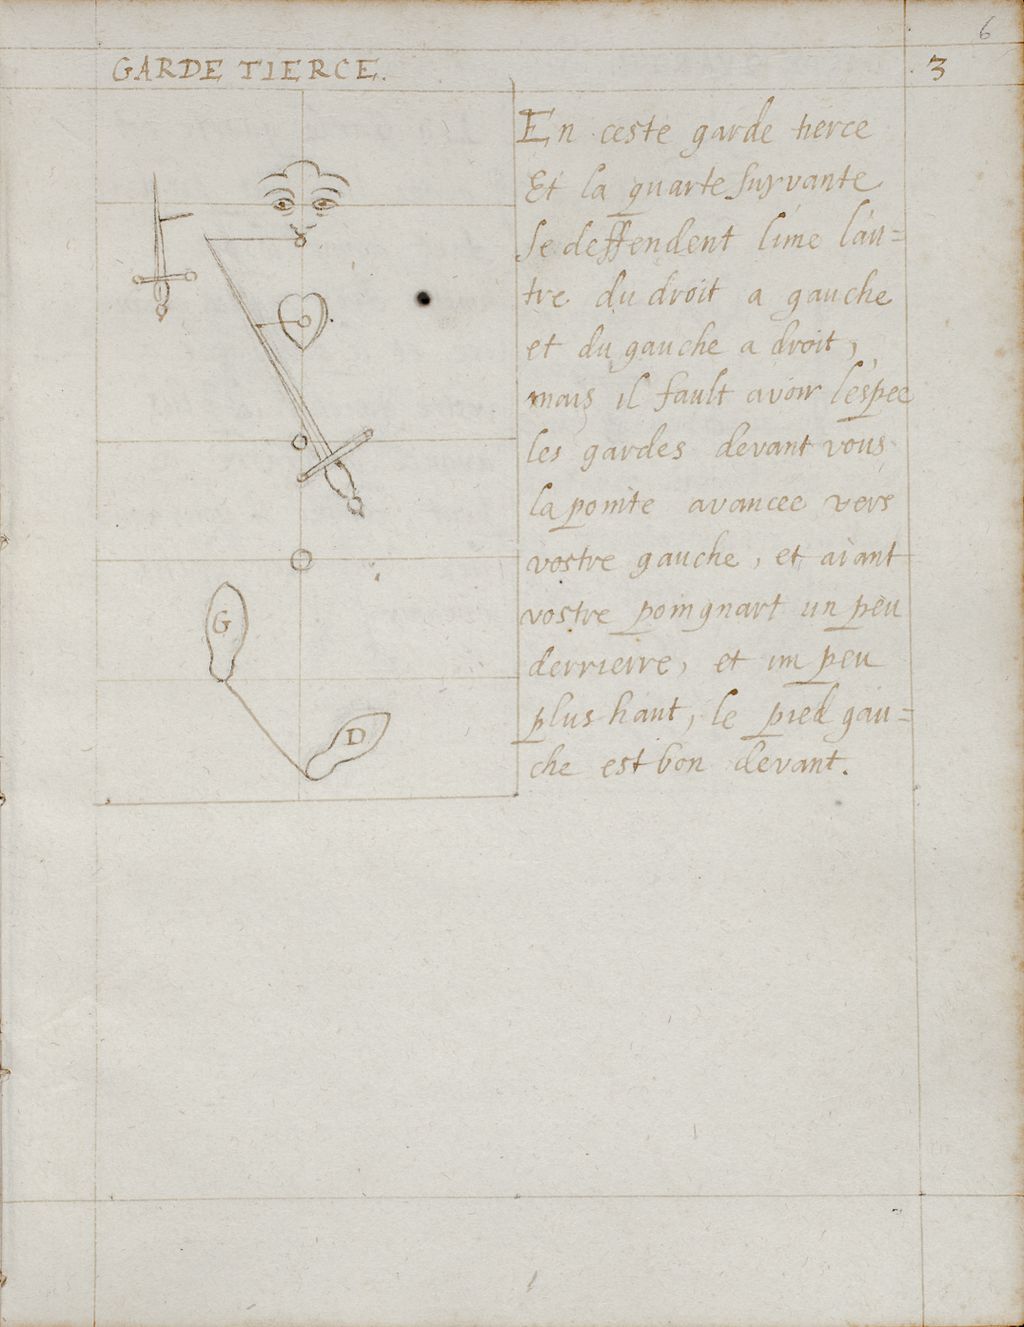 6
GARDE TIERCE.
3
En ceste garde tierce
Et la quarte suyvante
se deffendent l'une l'au=
tre du droit a gauche
et du gauche a droit,
mais il fault avoir l'espee
les gardes devant vous
la pointe avancee vers
vostre gauche, et aiant
vostre poingnart un peu
derrierre, et un peu
plus hault, le pied gau=
che est bon devant.
G
D